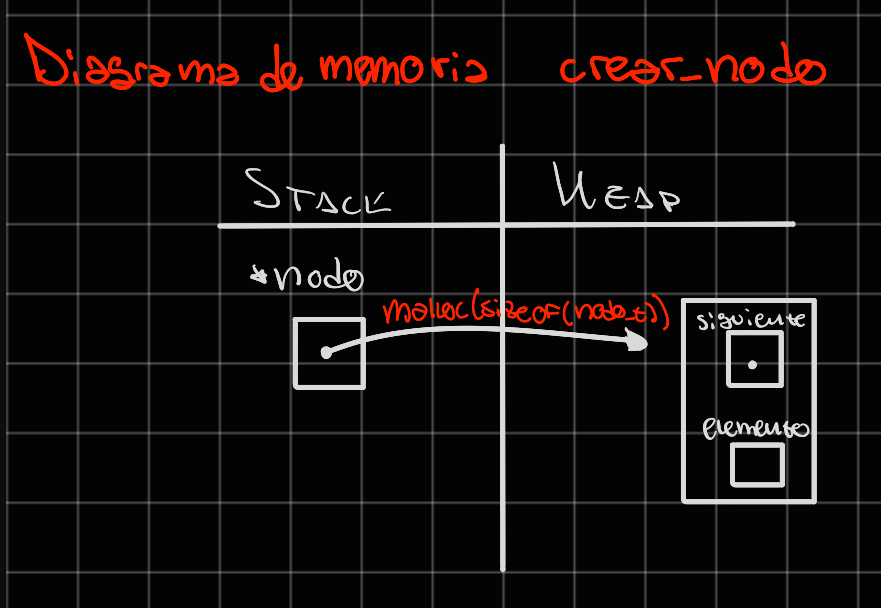 Diagrama de memoria crear_nodo
STACK HEAP
*nodo
malloc(sizeof(nodo_t))
siguiente
elemento